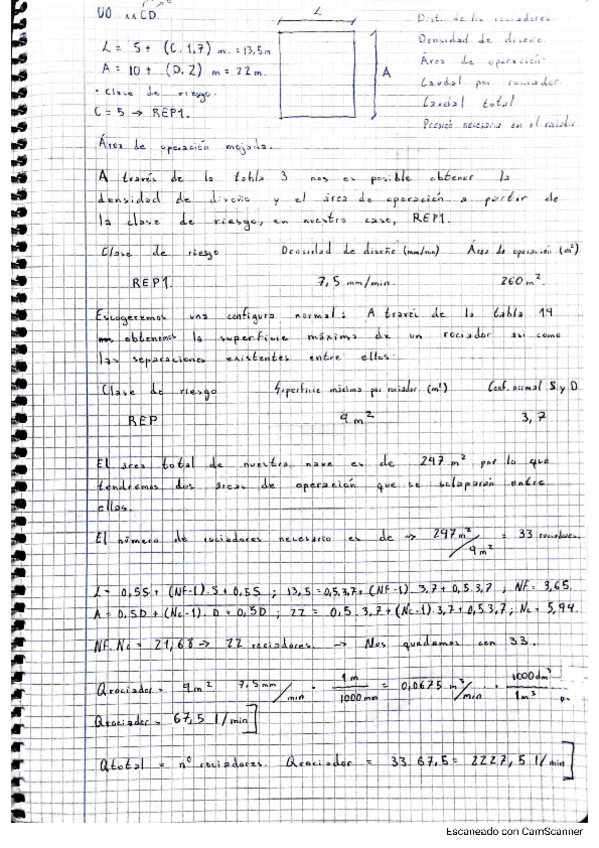 UO...xxCD.
L
L = 5 + (C.1,7) m. = 13,5m
A = 10 + (D.2) m = 22 m.
A
· Clase de riesgo.
C = 5 → REP1.
Dist. de los rociadores
Densidad de diseño.
Área de operación.
Caudal por rociador
Caudal total
Presión necesaria en el rociador
Área de operación mojada.
A través de la tabla 3 nos es posible obtener la
densidad de diseño y el área de operación a partir de
la clase de riesgo, en nuestro caso, REP1.
Clase de riesgo Densidad de diseño (mm/min) Área de operación (m²)
REP1. 7,5 mm/min. 260 m².
Escogeremos una configura normal: A través de la tabla 14
obtenemos la superficie máxima de un rociador así como
las separaciones existentes entre ellos:
Clase de riesgo Superficie máxima por rociador (m²) Conf. normal S y D
REP 9 m² 3,7
El área total de nuestra nave es de 297 m² por lo que
tendremos dos áreas de operación que se solaparán entre
ellas.
El número de rociadores necesario es de → 297 m² / 9 m² = 33 rociadores.
L = 0,5S + (NF-1).S + 0,5S ; 13,5 = 0,5.3,7 + (NF-1).3,7 + 0,5.3,7 ; NF = 3,65.
A = 0,5D + (Nc-1).D + 0,5D ; 22 = 0,5.3,7 + (Nc-1).3,7 + 0,5.3,7 ; Nc = 5,94.
NF.Nc = 21,68 → 22 rociadores. → Nos quedamos con 33.
Qrociador = 9 m² . 7,5 mm/min . 1 m/1000 mm = 0,0675 m³/min . 1000 dm³/1 m³
Qrociador = 67,5 l/min]
Qtotal = nº rociadores. Qrociador = 33.67,5 = 2227,5 l/min]
Escaneado con CamScanner